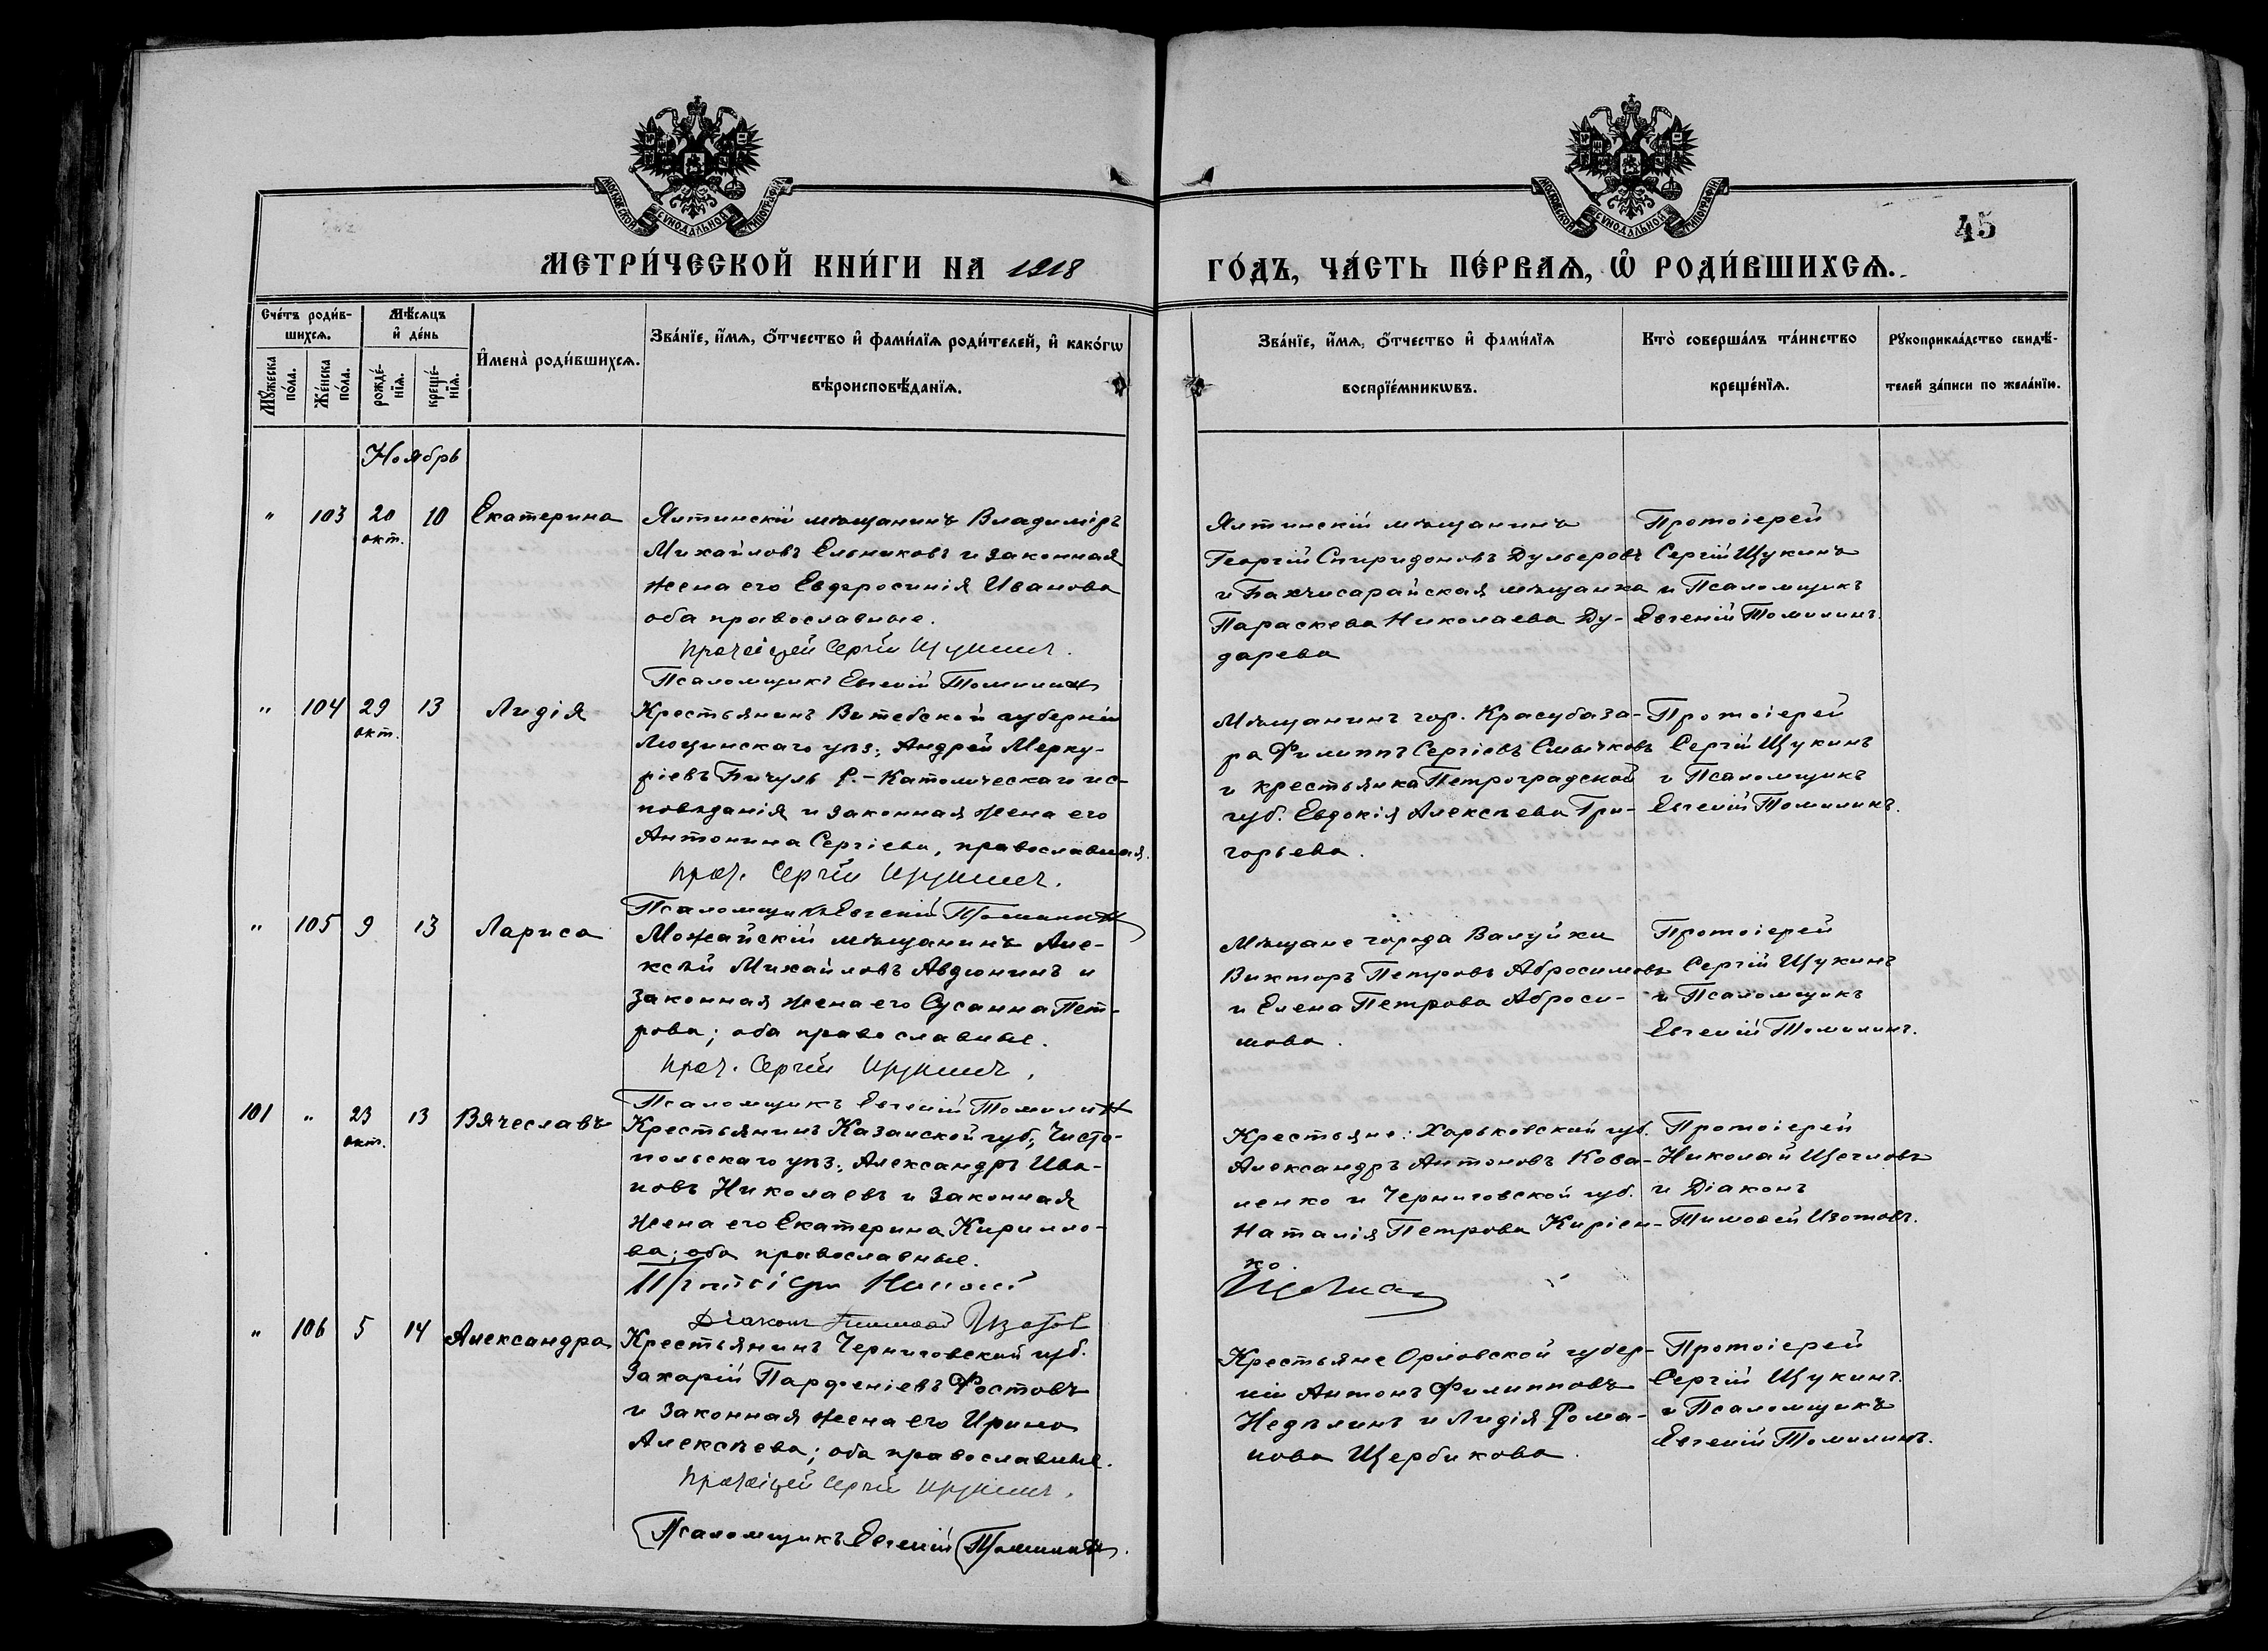 МОСКОВСКОЙ СУНОДАЛЬНОЙ ТИПОГРАФІИ
МОСКОВСКОЙ СУНОДАЛЬНОЙ ТИПОГРАФІИ
45
МЕТРИ́ЧЕСКОЙ КНИ́ГИ НА 1918
ГО́ДЪ, ЧА́СТЬ ПЕ́РВАѦ, Ѽ РОДИ́ВШИХСѦ.
Сче́тъ роди́в-
шихсѧ.
Мꙋ́жеска по́ла.
Же́нска по́ла.
Мѣ́сѧцъ
и҆ де́нь
рожде́-нїѧ.
креще́-нїѧ.
И҆мена̀ роди́вшихсѧ.
Зва́нїе, и҆́мѧ, ѻ҆́тчество и҆ фами́лїѧ роди́телей, и҆ како́гѡ
вѣроисповѣ́данїѧ.
Зва́нїе, и҆́мѧ, ѻ҆́тчество и҆ фами́лїѧ
воспрїе́мникѡвъ.
Кто̀ соверша́лъ та́инство
креще́нїѧ.
Рꙋкоприкла́дство свидѣ́-
телей за́писи по жела́нїю.
Ноябрь
" 103 20 окт. 10 Екатерина
Ялтинскій мѣщанинъ Владиміръ
Михайловъ Ельниковъ и законная
жена его Евфросинія Иванова
оба православные.
Протоіерей Сергій Щукинъ.
Псаломщикъ Евгеній Томилинъ
Ялтинскій мѣщанинъ
Георгій Спиридоновъ Дульеровъ
и Бахчисарайская мѣщанка
Параскева Николаева Ду-
дарева
Протоіерей
Сергій Щукинъ
и Псаломщикъ
Евгеній Томилинъ.
" 104 29 окт. 13 Лидія
Крестьянинъ Витебской губерніи
Люцинскаго уѣз., Андрей Мерку-
ріевъ Бичуль Р.-Католическаго ис-
повѣданія и законная жена его
Антонина Сергіева, православная.
Прот. Сергій Щукинъ.
Псаломщикъ Евгеній Томилинъ
Мѣщанинъ гор. Карасубаза-
ра Филиппъ Сергіевъ Смычковъ
и крестьянка Петроградской
губ. Евдокія Алексѣева Гри-
горьева.
Протоіерей
Сергій Щукинъ
и Псаломщикъ
Евгеній Томилинъ.
" 105 9 13 Лариса
Можайскій мѣщанинъ Але-
ксѣй Михайловъ Авдюнинъ и
законная жена его Сусанна Пет-
рова; оба православные.
Прот. Сергій Щукинъ.
Псаломщикъ Евгеній Томилинъ
Мѣщане города Валуйки
Викторъ Петровъ Абросимовъ
и Елена Петрова Аброси-
мова.
Протоіерей
Сергій Щукинъ
и Псаломщикъ
Евгеній Томилинъ.
101 " 23 окт. 13 Вячеславъ
Крестьянинъ Казанской губ., Чисто-
польскаго уѣз., Александръ Ива-
новъ Николаевъ и законная
жена его Екатерина Кирилло-
ва; оба православные.
Протоіерей Николай
Діаконъ Тимоѳей Изотов
Крестьяне: Харьковской губ.
Александръ Антоновъ Кова-
ленко и Черниговской губ.
Наталія Петрова Киріен-
ко.
Протоіерей
Николай Щегловъ
и Діаконъ
Тимоѳей Изотовъ.
" 106 5 14 Александра
Крестьянинъ Черниговской губ.
Захарій Парфеніевъ Фостовъ
и законная жена его Ирина
Алексѣева; оба православные.
Протоіерей Сергій Щукинъ.
Псаломщикъ Евгеній Томилинъ.
Крестьяне Орловской губер-
ніи Антонъ Филипповъ
Недѣлинъ и Лидія Рома-
нова Щербикова.
Протоіерей
Сергій Щукинъ.
и Псаломщикъ
Евгеній Томилинъ.